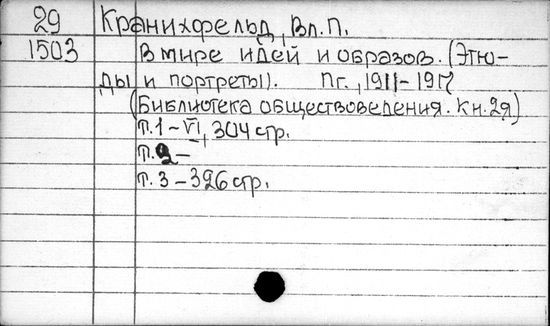 29 Кранихфельд, Вл. П.
1503 В мире идей и образов. (Этю-
ды и портреты). Пг., 1911-1917
(Библиотека обществоведения. Кн. 2я)
т. 1 - VI, 304 стр.
т. 2 -
т. 3 - 326 стр.